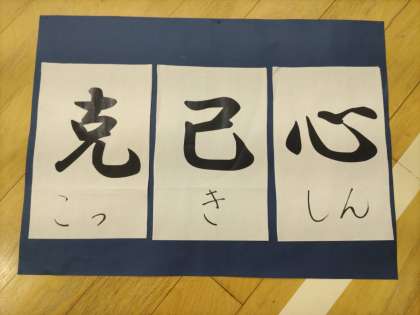 克己心
こっ き しん